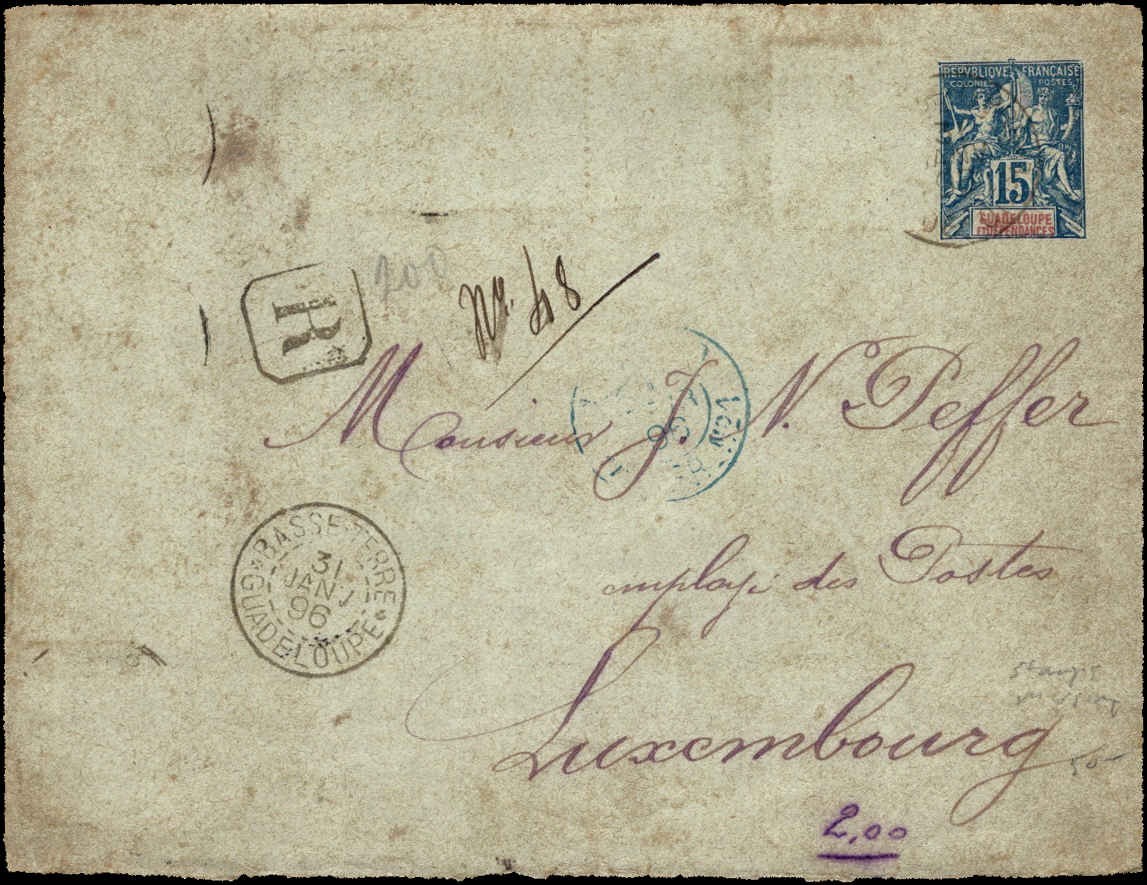 REPVBLIQVE FRANÇAISE
COLONIES POSTES
15
GUADELOUPE
ET DEPENDANCES
200
R
Nº. 48
Monsieur J. N. Peffer
employé des Postes
Luxembourg
BASSE-TERRE
31
JANV
96
GUADELOUPE
stamps
missing
50
2,00